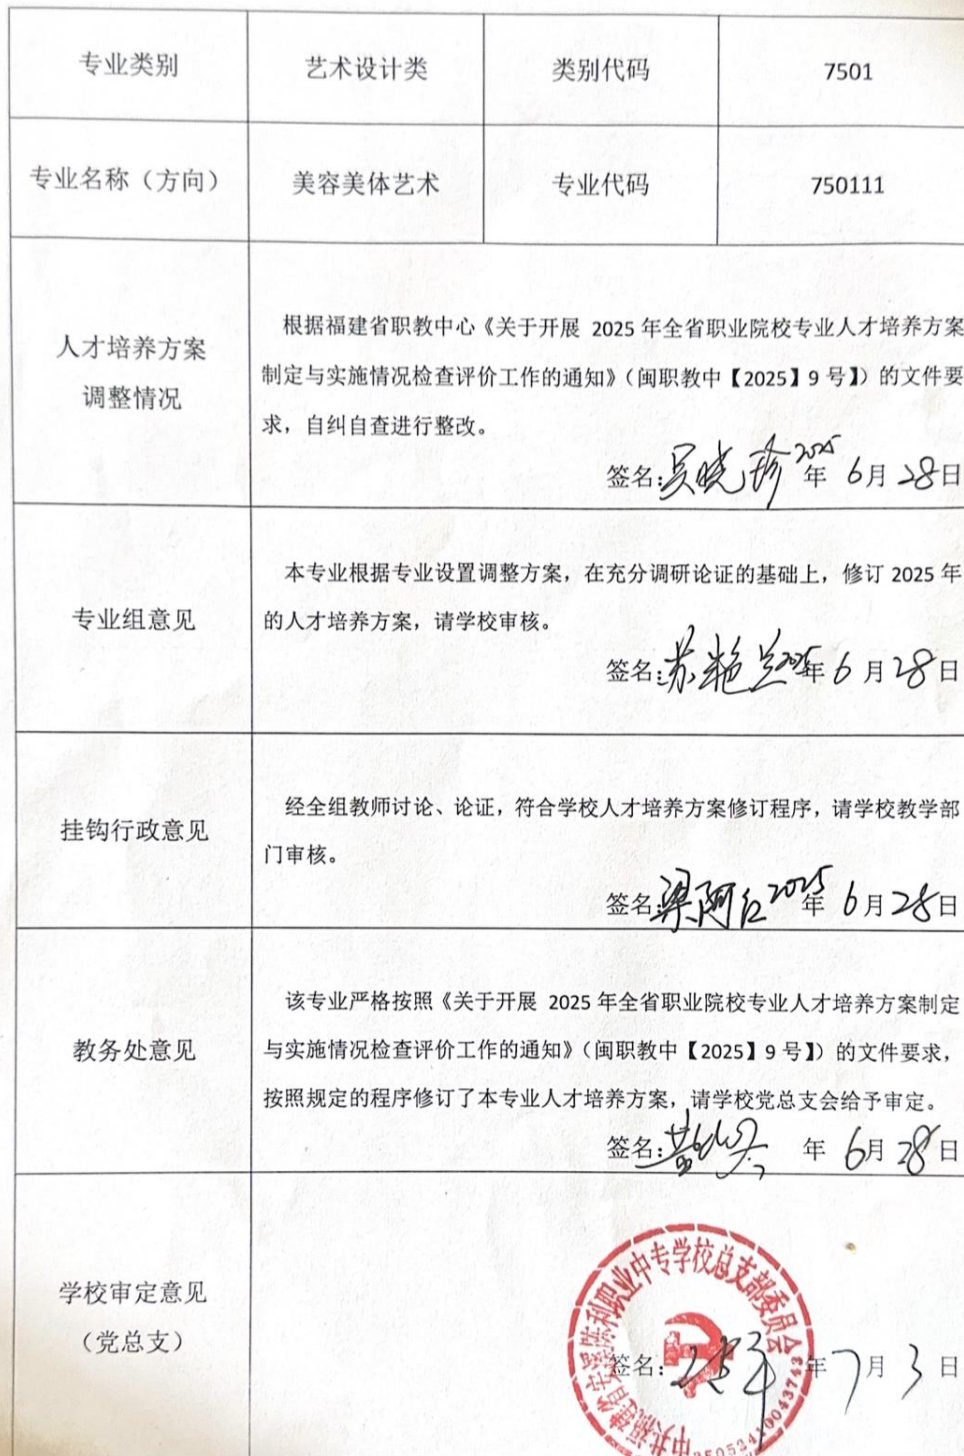 专业类别 艺术设计类 类别代码 7501
专业名称（方向） 美容美体艺术 专业代码 750111
人才培养方案
调整情况
根据福建省职教中心《关于开展 2025 年全省职业院校专业人才培养方案
制定与实施情况检查评价工作的通知》（闽职教中【2025】9 号】）的文件要
求，自纠自查进行整改。
签名：吴晓珍 2025年 6月 28日
专业组意见
本专业根据专业设置调整方案，在充分调研论证的基础上，修订 2025 年
的人才培养方案，请学校审核。
签名：苏艳兰 2025年 6月 28日
挂钩行政意见
经全组教师讨论、论证，符合学校人才培养方案修订程序，请学校教学部
门审核。
签名：梁阿红 2025年 6月 28日
教务处意见
该专业严格按照《关于开展 2025 年全省职业院校专业人才培养方案制定
与实施情况检查评价工作的通知》（闽职教中【2025】9 号】）的文件要求，
按照规定的程序修订了本专业人才培养方案，请学校党总支会给予审定。
签名： 年 6月 28日
学校审定意见
（党总支）
中共福建省安溪陈利职业中专学校总支部委员会
签名： 年 7月 3日